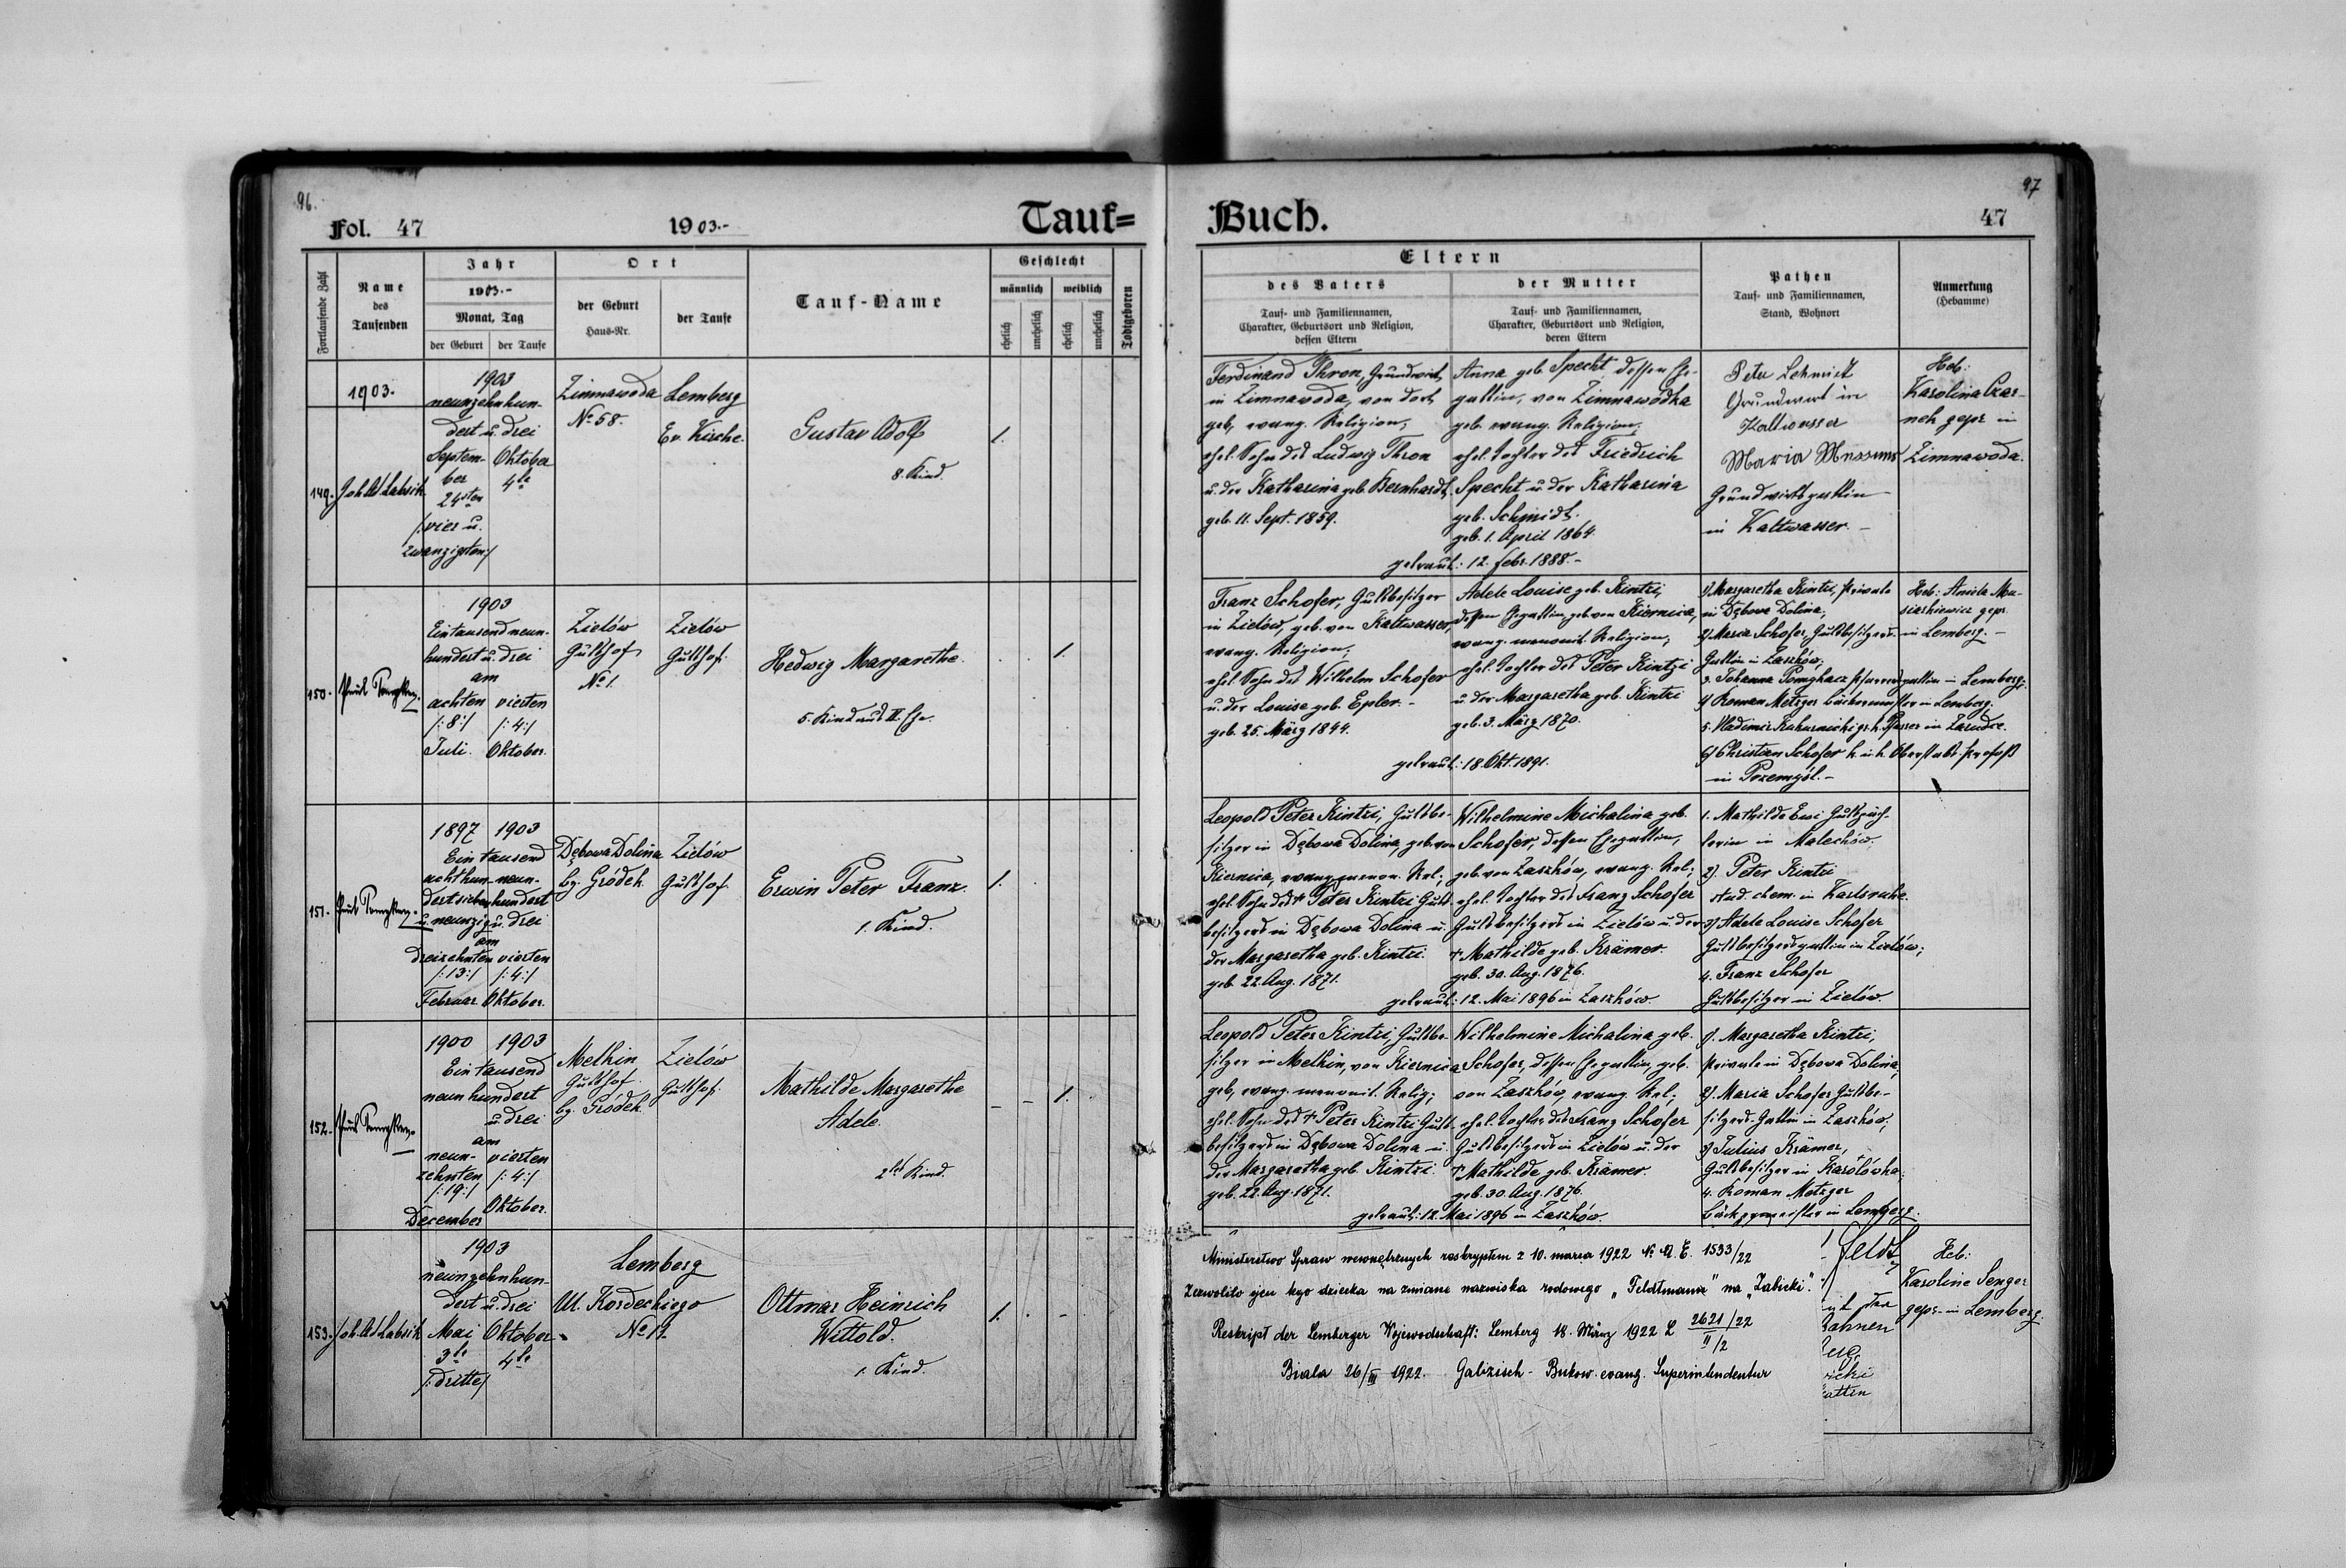 96.
Fol. 47
1903.-
Tauf=
Fortlaufende Zahl
Name
des
Taufenden
Jahr
1903.-
Monat, Tag
der Geburt
der Taufe
Ort
der Geburt
Haus-Nr.
der Taufe
Tauf-Name
Geschlecht
männlich
weiblich
ehelich
unehelich
ehelich
unehelich
Todtgeboren
1903.
149.
Joh. Ad. Labsik
1903
neunzehnhun-
dert u. drei
Septem-
ber
24ten
/:vier u.
zwanzigsten:/
Oktober
4te
Zimnawoda
No 58.
Lemberg
Ev. Kirche.
Gustav Adolf
8. Kind.
1.
150.
Paul
1903
Eintausend neun-
hundert u. drei
am
achten
/:8:/
Juli.
vierten
/:4:/
Oktober.
Zielów
Gutshof
No 1.
Zielów
Gutshof.
Hedwig Margarethe.
5. Kind aus II. Ehe.
1.
151.
Paul
1897 1903
Ein tausend
acht hun- neun-
dert sieben hundert
u. neunzig u. drei
am
dreizehnten vierten
/:13:/ /:4:/
Februar Oktober.
Dębowa Dolina
bg. Gródek
Zielów
Gutshof.
Erwin Peter Franz.
1. Kind.
1.
152.
Paul
1900 1903
Ein tausend
neun hundert
u. drei
am
neun- vierten
zehnten /:4:/
/:19:/
December Oktober.
Melkin
Gutshof
bg. Gródek.
Zielów
Gutshof.
Mathilde Margarethe
Adele.
2tes Kind.
1.
153.
Joh. Ad. Labsik
1903
neunzehnhun-
dert u. drei
Mai Oktober
3te 4te
/:dritte:/
Lemberg
Ul. Kordeckiego
No 17.
Ottmar Heinrich
Wittold.
1. Kind.
1.
97
Buch.
47
Eltern
des Vaters
Tauf- und Familiennamen,
Charakter, Geburtsort und Religion,
dessen Eltern
der Mutter
Tauf- und Familiennamen,
Charakter, Geburtsort und Religion,
deren Eltern
Pathen
Tauf- und Familiennamen,
Stand, Wohnort
Anmerkung
(Hebamme)
Ferdinand Thron, Grundwirt
in Zimnawoda, von dort
geb, evang. Religion;
ehel. Sohn des Ludwig Thron
u. der Katharina geb. Bernhardt,
geb. 11. Sept. 1859.
Anna geb. Specht dessen Ehe-
gattin, von Zimnawodka
geb. evang. Religion;
ehel. Tochter des Friedrich
Specht u. der Katharina
geb. Schmidt.
geb. 1. April 1864.
getraut: 12. Febr. 1888.-
Peter Schmidt
Grundwirt in
Kaltwasser
Maria
Grundwirtsgattin
in Kaltwasser.-
Heb:
Karolina Czar-
nek gepr. in
Zimnawoda.
Franz Schofer, Gutsbesitzer
in Zielów, geb. von Kaltwasser,
evang. Religion;
ehel. Sohn des Wilhelm Schofer
u. der Louise geb. Epler.-
geb. 25. März 1844.
Adele Louise geb. Kintzi,
dessen Ehegattin, geb. von Kiernica,
evang. menonit. Religion;
ehel. Tochter des Peter Kintzi
u. der Margaretha geb. Kintzi
geb. 3. März 1870.
getraut: 18. Okt. 1891.
1) Margaretha Kintzi, Private
in Dębowa Dolina;
2) Maria Schofer, Gutsbesitzers-
Gattin in Zaszków;
3. Johanna Pfarrersgattin in Lemberg;
4) Roman Metzger Bäckermeister in Lemberg;
5. Wladimir gr. k. Pfarrer in Zarudce.
6) Christian Schofer k. u. k. Oberstabs-Profoß
in Przemyśl.-
Heb: Aniela Ma-
siaskiewicz gepr.
in Lemberg.-
Leopold Peter Kintzi, Gutsbe-
sitzer in Dębowa Dolina, geb. von
Kiernica, evang. menon. Rel;
ehel. Sohn des + Peter Kintzi Guts-
besitzers in Dębowa Dolina u.
der Margaretha geb. Kintzi.
geb. 22. Aug. 1871.
Wilhelmine Michalina geb.
Schofer, dessen Ehegattin,
geb. von Zaszków, evang. Rel;
ehel. Tochter des Franz Schofer
Gutsbesitzers in Zielów u. der
+ Mathilde geb. Krämer.
geb. 30. Aug. 1876.
getraut: 12. Mai 1896 in Zaszków
1. Mathilde Ewi Gutspäch-
terin in Malechów.
2). Peter Kintzi
stud. chem. in Karlsruhe.
3) Adele Louise Schofer
Gutsbesitzersgattin in Zielów;
4. Franz Schofer
Gutsbesitzer in Zielów.
Leopold Peter Kintzi, Gutsbe-
sitzer in Melkin, von Kiernica
geb, evang. menonit. Relig;
ehel. Sohn des + Peter Kintzi Guts-
besitzers in Dębowa Dolina u.
der Margaretha geb. Kintzi.
geb. 22. Aug. 1871.
Wilhelmine Michalina geb.
Schofer, dessen Ehegattin, geb.
von Zaszków, evang Rel;
ehel. Tochter des Franz Schofer
Gutsbesitzers in Zielów u. der
+ Mathilde geb. Krämer.
geb. 30 Aug. 1876.
getraut: 12. Mai 1896 in Zaszków.
1). Margaretha Kintzi,
Private in Dębowa Dolina;
2). Maria Schofer Gutsbe-
sitzers-Gattin in Zaszków;
3) Julius Krämer,
Gutsbesitzer in Karolówka;
4. Roman Metzger
Bäckermeister in Lemberg.
Ministerstwo Spraw wewnętrznych reskryptem z 10. marca 1922 No A. E. 1533/22
zezwoliło ojcu tego dziecka na zmianę nazwiska rodowego „Feldtmann" na „Zabicki".
Reskript der Lemberger Wojewodschaft: Lemberg 18. März 1922 L 2621/22 II/2
Biala 26/III 1922. Galizisch-Bukow. evang. Superintendentur
Feldt
Bahnen
Heb:
Karoline Senger
gepr. in Lemberg.